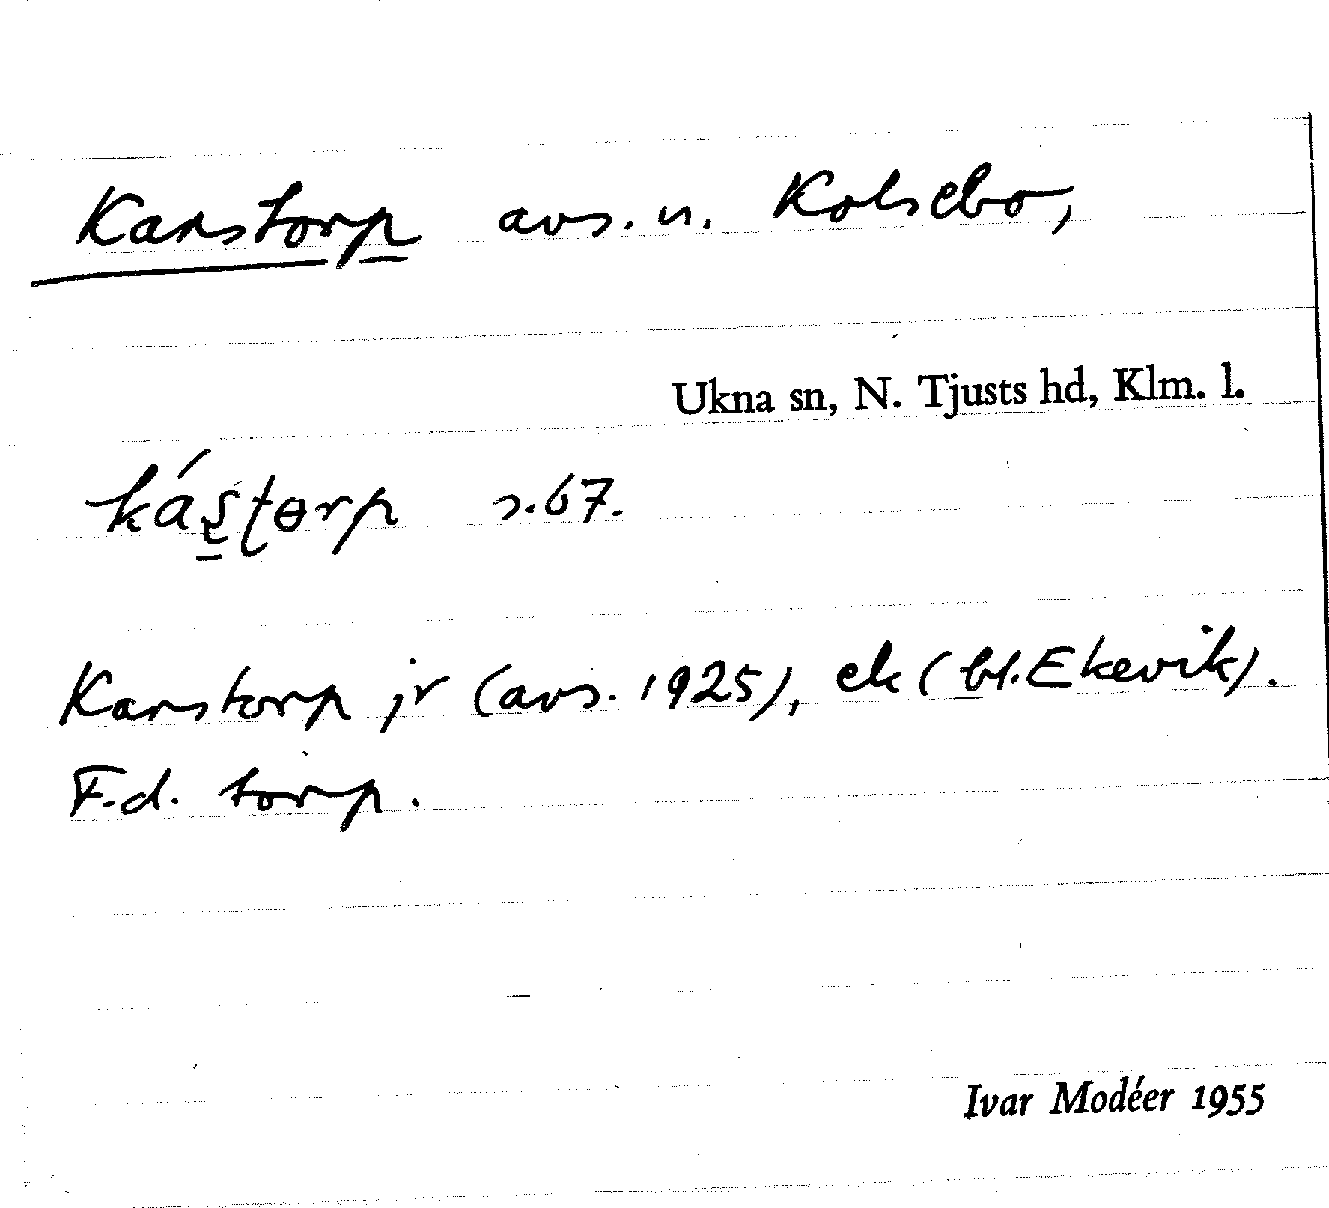 Karstorp avs. u. Kolsebo,
Ukna sn, N. Tjusts hd, Klm. l.
s. 67.
Karstorp jr (avs. 1925), ek (bl. Ekevik).
F.d. torp.
Ivar Modéer 1955